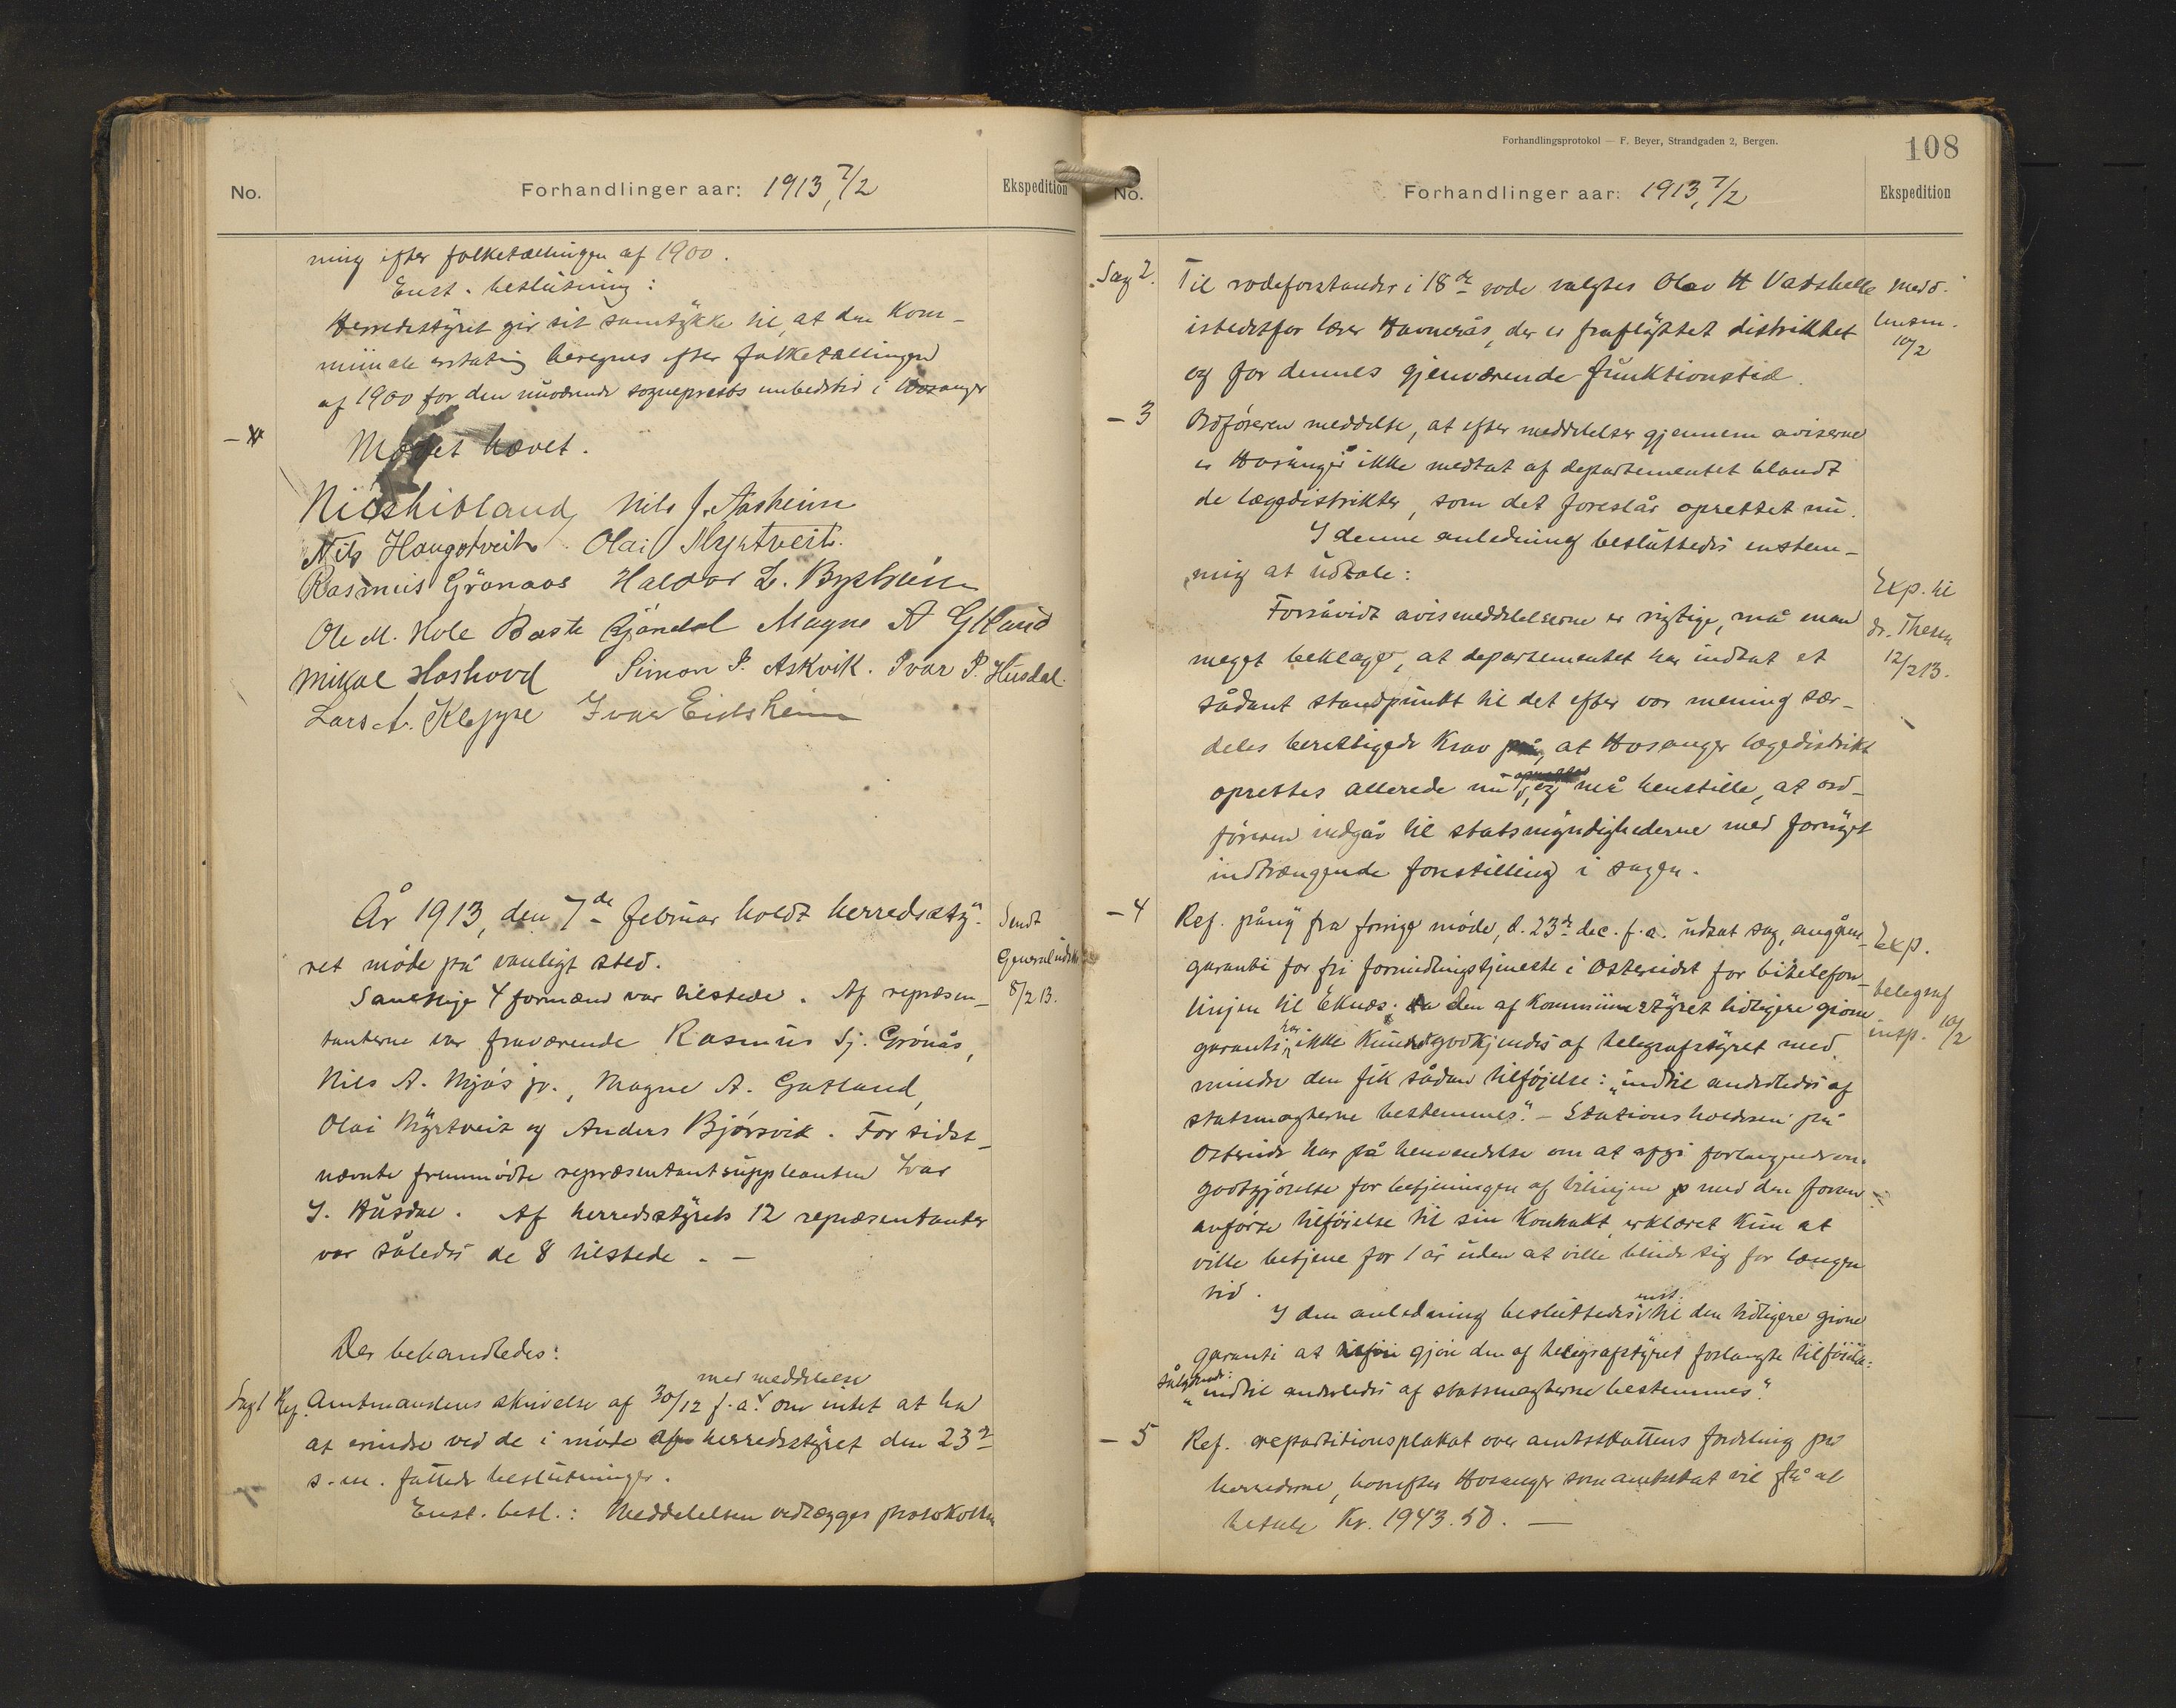 No.
Forhandlinger aar: 1913, 7/2
Ekspedition
ning efter folketællingen af 1900.
Enst. beslutning:
Herredsstyret gir sit samtykke til, at den kom-
munale erstating beregnes efter folketællingen
af 1900 for den nuværende sogneprests embedstid i Hosanger
Mødet hævet.
Nils J. Aasheim
Nils Haugstveit Olai Myrtveit.
Rasmus Grønaas Haldor L. Bysheim
Ole M. Hole Baste Gjøndal Magne A Gatland
Mikal Hoshovd Simon P. Askvik. Ivar P. Husdal.
Lars A. Kleppe Ivar Eidsheim
År 1913, den 7de februar holdt herredssty-
ret møde på vanligt sted.
Samtlige 4 formænd var tilstede. Af repræsen-
tanterne var fraværende Rasmus Sj. Grønås,
Nils A. Mjøs jr., Magne A. Gatland,
Olai Myrtveit og Anders Bjørsvik. For sidst-
nævnte fremmødte repræsentantsuppleanten Ivar
I. Husdal. Af herredsstyrets 12 repræsentanter
var således de 8 tilstede. —
Sendt
Generaludsk
8/2 13.
Der behandledes:
med meddelelse
Sag 1 Ref. Amtmandens skrivelse af 30/12 f.a. om intet at ha
at erindre ved de i møde af herredsstyret den 23de
s.m. fattede beslutninger.
Enst. besl.: Meddelelsen vedlægges protokollen
Forhandlingsprotokol — F. Beyer, Strandgaden 2, Bergen.
108
No.
Forhandlinger aar: 1913, 7/2
Ekspedition
Sag 2. Til rodeforstander i 18de rode valgtes Olav H Vatshelle
istedetfor lærer Havnerås, der er fraflyttet distriktet
og for dennes gjenværende funktionstid.
medd.
10/2
— 3 Ordføreren meddelte, at efter meddelelser gjennem aviserne
er Hosanger ikke medtat af departementet blandt
de lægedistrikter, som det foreslår oprettet nu.
I denne anledning besluttedes enstem-
mig at udtale:
Forsåvidt avismeddelelserne er rigtige, må man
meget beklage, at departementet har indtat et
sådant standpunkt til det efter vor mening sær-
deles berettigede krav på, at Hosanger lægedistrikt
oprettes allerede nu, og må henstille, at ord-
føreren indgår til statsmyndighederne med fornyet
indtrængende forestilling i sagen.
Exp. til
dr. Thesen
12/2 13.
— 4 Ref. påny fra forrige møde, d. 23de dec. f.a. udsat sag, angående
garanti for fri formidlingstjeneste i Ostereidet for bitelefon-
linjen til Eknæs; da den af kommunestyret tidligere givne
garanti har ikke kunnet godkjendes af telegrafstyret med
mindre den fik sådan tilføjelse: "indtil anderledes af
statsmagterne bestemmes". — Stationsholderen på
Ostereide har på henvendelse om at afgi forlangende om
godtgjørelse for betjeningen af bilinjen med den foran-
anførte tilføielse til sin kontrakt, erklæret kun at
ville betjene for 1 år uden at ville binde sig for længere
tid.
Exp.
telegraf
insp. 10/2
enst.
I den anledning besluttedes til den tidligere givne
garanti at gjøre den af telegrafstyret forlangte tilføielse:
sålydende:
"indtil anderledes af statsmagterne bestemmes".
— 5 Ref. repartitionsplakat over amtsskattens fordeling på
herrederne, hvorefter Hosanger som amtsskat vil få at
betale Kr. 1943.50. —